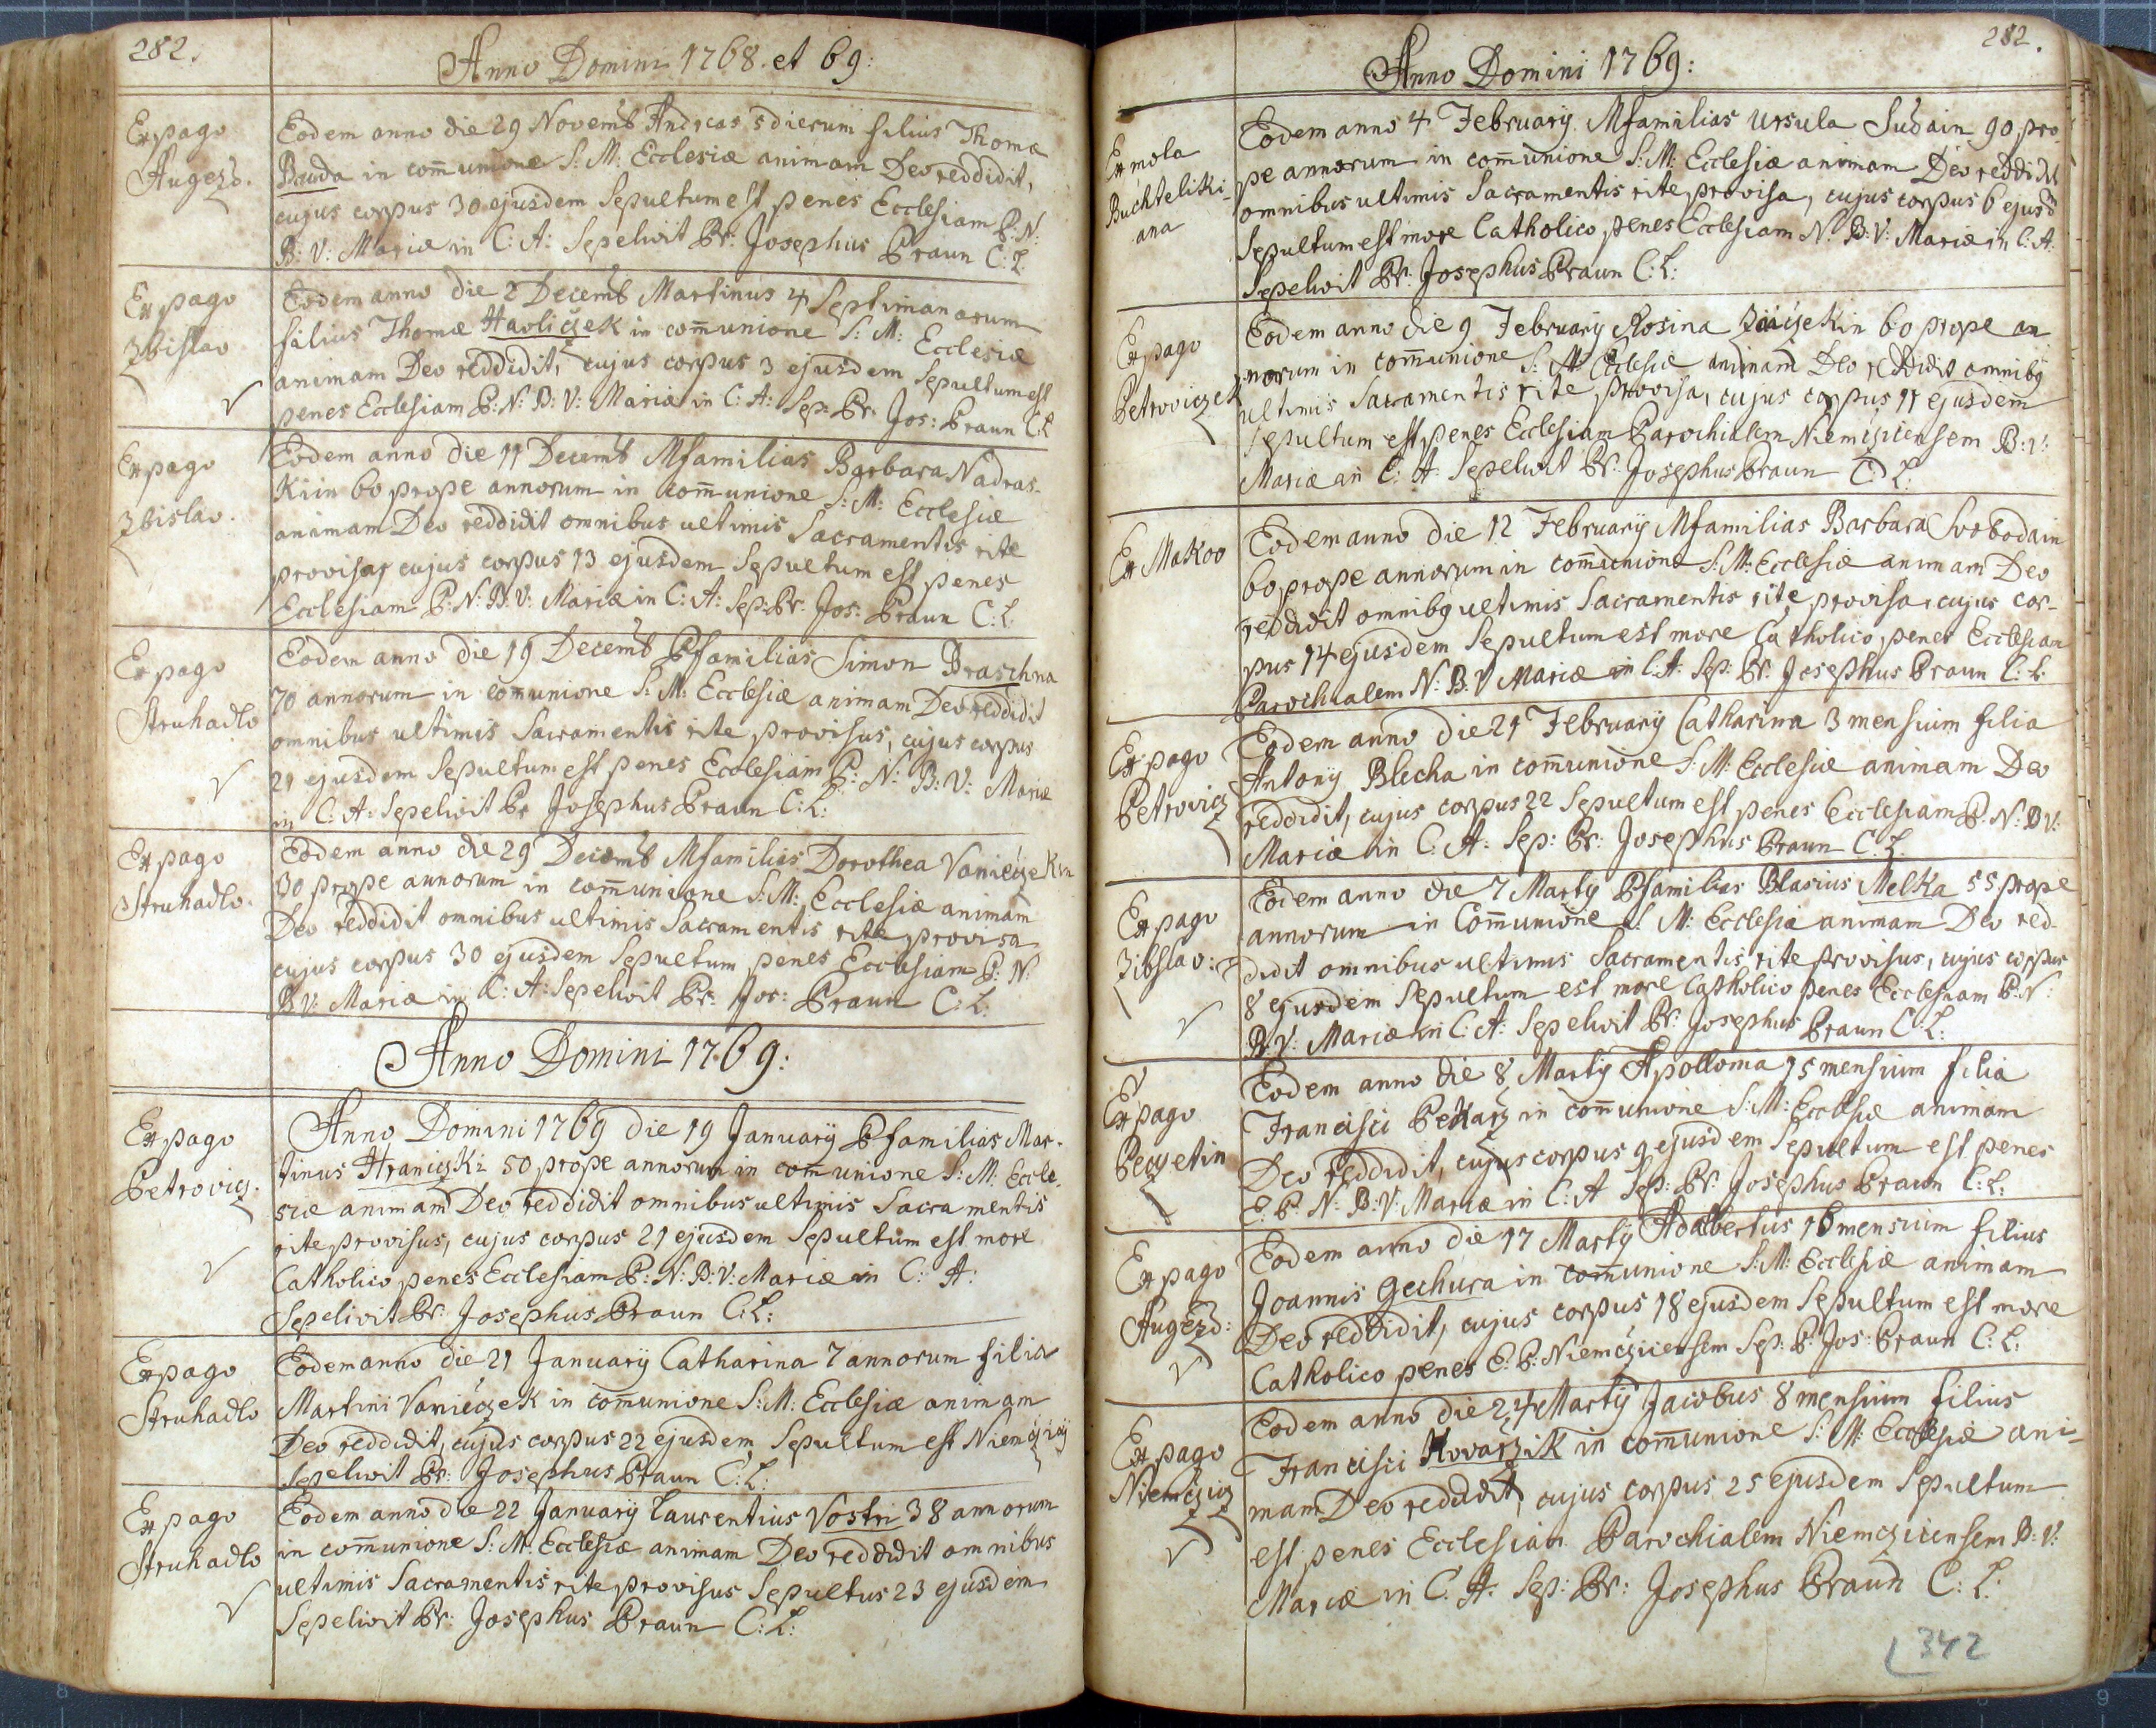 282.
Anno Domini 1768. et 69:
Ex pago
Augezd.
Eodem anno die 29 Novemb Andreas 5 dierum filius Thomæ
Bauda in com̄unione S: M: Ecclesiæ animam Deo reddidit,
cujus corpus 30 ejusdem Sepultum est penes Ecclesiam P: N:
B: V: Mariæ in C: A: Sepelivit Pr: Josephus Braun C: L:
Ex pago
Zbislav
Eodem anno die 2 Decemb Martinus 4 Septimanarum
filius Thomæ Havliczek in com̄unione S: M: Ecclesiæ
animam Deo reddidit, cujus corpus 3 ejusdem Sepultum est
penes Ecclesiam P: N: B: V: Mariæ in C: A: Sep: Pr: Jos: Braun C: L
Ex pago
Zbislav.
Eodem anno die 11 Decemb Mfamilias Barbara Nadras-
kiin 60 prope annorum in com̄unione S: M: Ecclesiæ
animam Deo reddidit omnibus ultimis Sacramentis rite
provisa, cujus corpus 13 ejusdem Sepultum est penes
Ecclesiam P: N: B: V: Mariæ in C: A: Sep: Pr: Jos: Braun C: L:
Ex pago
Struhadlo
Eodem anno die 19 Decemb Pfamilias Simon Braschna
70 annorum in com̄unione S: M: Ecclesiæ animam Deo reddidit
omnibus ultimis Sacramentis rite provisus, cujus corpus
21 ejusdem Sepultum est penes Ecclesiam P: N: B: V: Mariæ
in C: A: Sepelivit Pr Josephus Braun C: L:
Ex pago
Struhadlo.
Eodem anno die 29 Decemb Mfamilias Dorothea Vanieczekin
30 prope annorum in com̄unione S: M: Ecclesiæ animam
Deo reddidit omnibus ultimis Sacramentis rite provisa
cujus corpus 30 ejusdem Sepultum penes Ecclesiam P: N:
B: V: Mariæ in C: A: Sepelivit Pr: Jos: Braun C: L:
Anno Domini 1769:
Ex pago
Petrovicz.
Anno Domini 1769 die 19 Januarÿ Pfamilias Mar-
tinus Hraniczki 50 prope annorum in com̄unione S: M: Eccle-
siæ animam Deo reddidit omnibus ultimis Sacramentis
rite provisus, cujus corpus 21 ejusdem Sepultum est more
Catholico penes Ecclesiam P: N: B: V: Mariæ in C: A:
Sepelivit Pr: Josephus Braun C: L:
Ex pago
Struhadlo
Eodem anno die 21 Januarÿ Catharina 7 annorum filia
Martini Vanieczek in com̄unione S: M: Ecclesiæ animam
Deo reddidit, cujus corpus 22 ejusdem Sepultum est Niemczicÿ
Sepelivit Pr: Josephus Braun C: L:
Ex pago
Struhadlo
Eodem anno die 22 Januarÿ Laurentius Vostri 38 annorum
in com̄unione S: M: Ecclesiæ animam Deo reddidit omnibus
ultimis Sacramentis rite provisus Sepultus 23 ejusdem
Sepelivit Pr: Josephus Braun C: L:
282.
Anno Domini 1769:
Ex mola
Buchteliki-
ana
Eodem anno 4 Februarÿ Mfamilias Ursula Subain 90 pro-
pe annorum in com̄unione S: M: Ecclesiæ animam Deo reddidit
omnibus ultimis Sacramentis rite provisa, cujus corpus 6 ejusd
Sepultum est more Catholico penes Ecclesiam N: B: V: Mariæ in C: A:
Sepelivit Pr: Josephus Braun C: L:
Ex pago
Petroviczek
Eodem anno die 9 Februarÿ Rosina 60 prope an
norum in com̄unione S: M: Ecclesiæ animam Deo reddidit omnibg
ultimis Sacramentis rite provisa, cujus corpus 11 ejusdem
Sepultum est penes Ecclesiam Parochialem Niemcziciensem B: V:
Mariæ in C: A: Sepelivit Pr: Josephus Braun C: L:
Ex Makov
Eodem anno die 12 Februarÿ Mfamilias Barbara Svobodain
60 prope annorum in com̄unione S: M: Ecclesiæ animam Deo
reddidit omnibg ultimis Sacramentis rite provisa, cujus cor-
pus 14 ejusdem Sepultum est more Catholico penes Ecclesiam
Parochialem N: B: V Mariæ in C: A: Sep: Pr: Josephus Braun C: L:
Ex pago
Petrovicz
Eodem anno die 21 Februarÿ Catharina 3 mensium filia
Antonÿ Blecha in com̄unione S: M: Ecclesiæ animam Deo
reddidit, cujus corpus 22 Sepultum est penes Ecclesiam P: N: B V:
Mariæ in C: A: Sep: Pr: Josephus Braun C: L
Ex pago
Zibslav:
Eodem anno die 7 Martÿ Pfamilias Blasius Melka 55 prope
annorum in Com̄unione S: M: Ecclesiæ animam Deo red-
didit omnibus ultimis Sacramentis rite provisus, cujus corpus
8 ejusdem Sepultum est more Catholico penes Ecclesiam P: N:
B: V: Mariæ in C: A: Sepelivit Pr: Josephus Braun C: L:
Ex pago
Peczetin
Eodem anno die 8 Martÿ Apollonia 15 mensium filia
Francisci Pekarz in com̄unione S: M: Ecclesiæ animam
Deo reddidit, cujus corpus 9 ejusdem Sepultum est penes
E: P: N: B: V: Mariæ in C: A Sep: Pr: Josephus Braun C: L:
Ex pago
Augezd:
Eodem anno die 17 Martÿ Adalbertus 16 mensium filius
Joannis Gechura in com̄unione S: M: Ecclesiæ animam
Deo reddidit, cujus corpus 18 ejusdem Sepultum est more
Catholico penes E: P: Niemcziciensem Sep: P: Jos: Braun C: L:
Ex pago
Niemczicz
Eodem anno die 24 Martÿ Jacobus 8 mensium filius
Francisci Kovarzik in com̄unione S: M: Ecclesiæ ani-
mam Deo reddidit, cujus corpus 25 ejusdem Sepultum
est penes Ecclesiam Parochialem Niemcziciensem B: V:
Mariæ in C: A: Sep: Pr: Josephus Braun C: L:
342